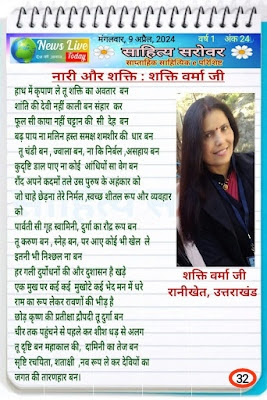 मंगलवार, 9 अप्रैल, 2024
वर्ष 1 अंक 24
News Live Today
साहित्य सरोवर
साप्ताहिक साहित्यिक e परिशिष्ट
नारी और शक्ति : शक्ति वर्मा जी
हाथ में कृपाण ले तू शक्ति का अवतार बन
शांति की देवी नहीं काली बन संहार कर
फूल सी काया नहीं चट्टान की सी देह बन
बढ़ पाय ना मलिन हस्त समक्ष शमशीर की धार बन
तू चंडी बन , ज्वाला बन, ना कि निर्बल ,असहाय बन
कुदृष्टि डाल पाए ना कोई आंधियों सा वेग बन
रौंद अपने कदमों तले उस पुरुष के अहंकार को
जो चाहे छेड़ना तेरे निर्मल ,स्वच्छ शीतल रूप और व्यवहार
को
पार्वती सी गृह स्वामिनी, दुर्गा का रौद्र रूप बन
तू करुण बन , स्नेह बन, पर आए कोई भी खेल ले
इतनी भी निश्छल ना बन
हर गली दुर्योधनों की और दुशासन है खड़े
एक मुख पर कई कई मुखोटे कई भेद मन में धरे
राम का रूप लेकर रावणों की भीड़ है
छोड़ कृष्ण की प्रतीक्षा द्रौपदी तू दुर्गा बन
चीर तक पहुंचने से पहले कर शीश धड़ से अलग
तू दृष्टि बन महाकाल की, दामिनी का तेज बन
सृष्टि रचयिता, शताक्षी ,नव रूप ले कर देवियों का
जगत की तारणहार बन।
शक्ति वर्मा जी
रानीखेत, उत्तराखंड
32